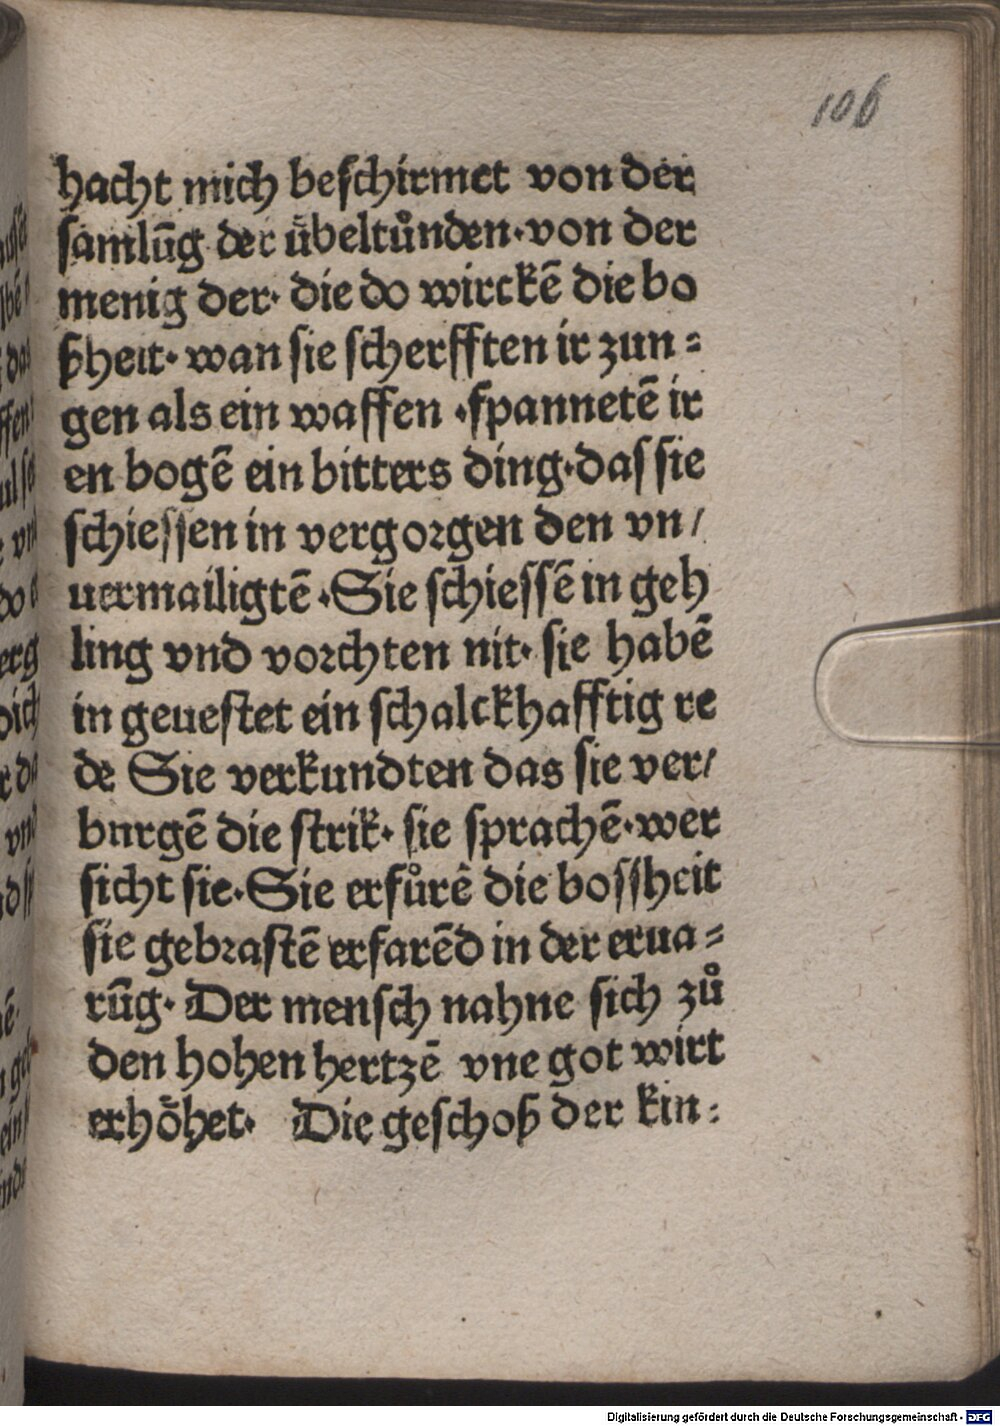 106
hacht mich beschirmet von der
samlūg der übeltůnden·von der
menig der· die do wirckē die bo
ßheit· wan sie scherfften ir zun⸗
gen als ein waffen ·spannetē ir
en bogē ein bitters ding·das sie
schiessen in vergorgen den vn/
uermailigtē·Sie schiessē in geh
ling vnd vorchten nit· sie habē
in geuestet ein schalckhafftig re
de Sie verkundten das sie ver/
burgē die strik· sie sprachē·wer
sicht sie·Sie erfůrē die bossheit
sie gebrastē erfarēd in der erua⸗
rūg· Der mensch nahne sich zů
den hohen hertzē vne got wirt
erhöhet· Die geschoß der kin⸗
Digitalisierung gefördert durch die Deutsche Forschungsgemeinschaft - DFG